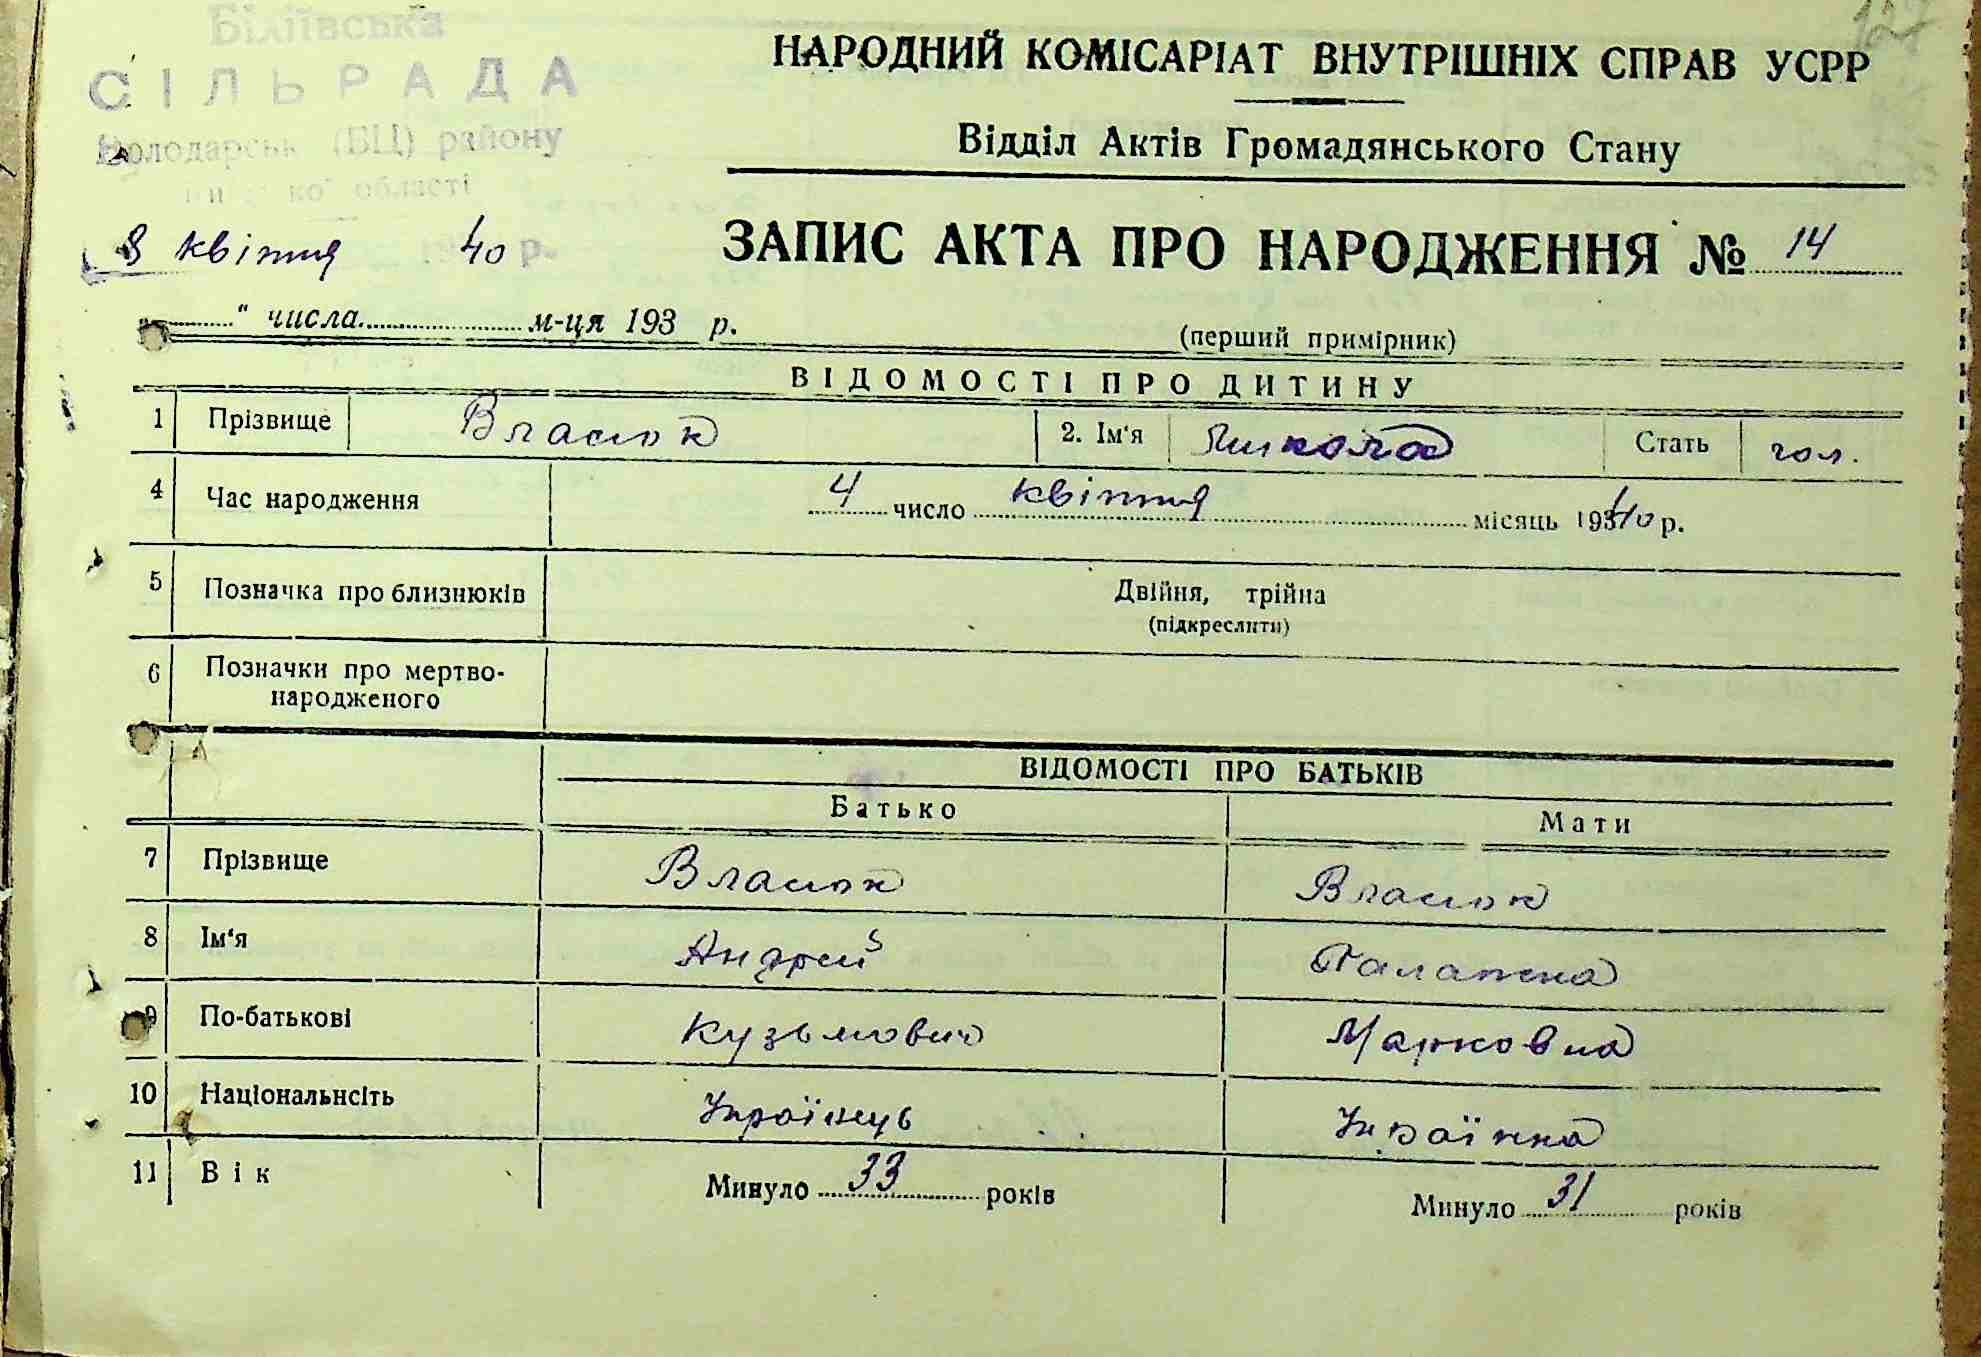 Біліївська
СІЛЬРАДА
Володарськ (БЦ) району
області
8 квітня 40 р.
127
НАРОДНИЙ КОМІСАРІАТ ВНУТРІШНІХ СПРАВ УСРР
Відділ Актів Громадянського Стану
ЗАПИС АКТА ПРО НАРОДЖЕННЯ № 14
„ “ числа м-ця 193 р.
(перший примірник)
ВІДОМОСТІ ПРО ДИТИНУ
1 Прізвище Власюк 2. Ім'я Микола Стать чол.
4 Час народження 4 число квітня місяць 1940 р.
5 Позначка про близнюків Двійня, трійна
(підкреслити)
6 Позначки про мертво-
народженого
ВІДОМОСТІ ПРО БАТЬКІВ
Батько Мати
7 Прізвище Власюк Власюк
8 Ім'я Андрей Палажка
9 По-батькові Кузьмович Марковна
10 Національнсіть Українець Українка
11 Вік Минуло 33 років Минуло 31 років